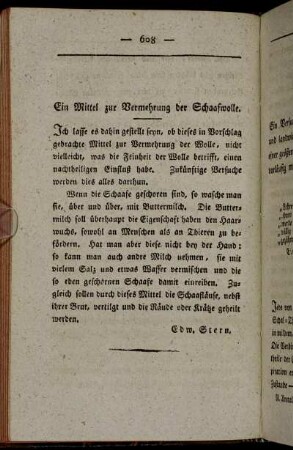 — 608 —
Ein Mittel zur Vermehrung der Schaafwolle.
Ich lasse es dahin gestellt seyn, ob dieses in Vorschlag
gebrachte Mittel zur Vermehrung der Wolle, nicht
vielleicht, was die Feinheit der Wolle betrifft, einen
nachtheiligen Einfluß habe. Zukünftige Versuche
werden dies alles darthun.
Wenn die Schaafe geschoren sind, so wasche man
sie, über und über, mit Buttermilch. Die Butter-
milch soll überhaupt die Eigenschaft haben den Haar-
wuchs, sowohl an Menschen als an Thieren zu be-
fördern. Hat man aber diese nicht bey der Hand:
so kann man auch andre Milch nehmen, sie mit
vielem Salz und etwas Wasser vermischen und die
so eben geschornen Schaafe damit einreiben. Zu-
gleich sollen durch dieses Mittel die Schaafläuse, nebst
ihrer Brut, vertilgt und die Räude oder Krätze geheilt
werden.
Edw. Stern.
Ein Versu
und landwir